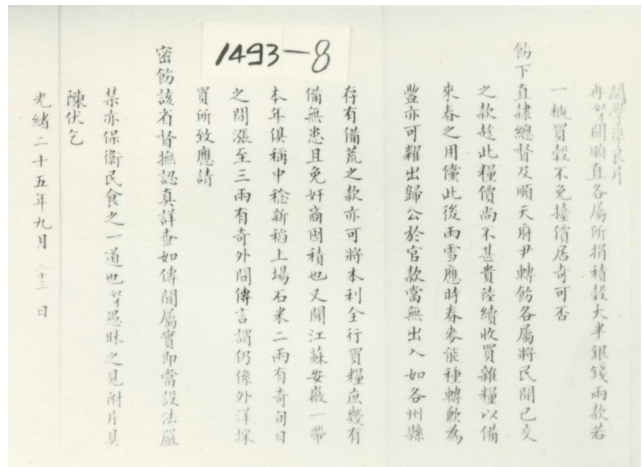 1493-8
再
聞順直各屬所捐積穀大半銀錢兩款若
一概買穀不免擡價居奇可否
飭下直隸總督及順天府尹轉飭各屬將民間已交
之款趁此糧價尚不甚貴陸續收買雜糧以備
來春之用儻此後雨雪應時春麥能種轉歉為
豐亦可糶出歸公於官款當無出入如各州縣
存有備荒之款亦可將本利全行買糧庶幾有
備無患且免奸商囤積也又聞江蘇安徽一帶
本年俱稱中稔新稻上場石米二兩有奇旬日
之間漲至三兩有奇外間傳言謂仍係外洋採
買所致應請
密飭該省督撫認真詳查如傳聞屬實即當設法嚴
禁亦保衛民食之一道也
愚昧之見附片具
陳伏乞
光緒二十五年九月
二十三
日